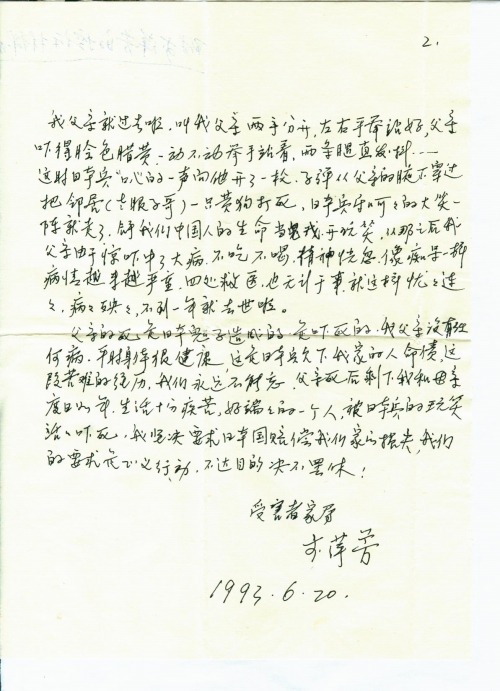 2.
我父亲就过去啦，叫我父亲两手分开，左右平举站好，父亲
吓得脸色腊黄，一动不动举手站着，两条腿直发抖……
这时日本兵"叭"的一声向他开了一枪，子弹从父亲的腋下穿过
把邻居(哥)一只黄狗打死，日本兵呵呵的大笑一
阵就走了，拿我们中国人的生命当儿戏开玩笑，从那之后我
父亲由于惊吓中了大病，不吃不喝，精神恍忽，像痴呆一样
病情越来越严重，四处救医，也无计于事就这样忧々
々，病々殃々，不到一年就去世啦。
父亲的死是日本鬼子造成的，是吓死的，我父亲没有任
何病，平时身体很健康，这是日本兵欠下我家的人命债，这
段苦难的经历，我们永远不能忘，父亲死后剩下我和母亲
度日如年，生活十分疾苦，好端々的一个人，被日本兵的玩笑
活々吓死，我坚决要求日本国赔偿我们家的损失，我们
的要求是正义行动，不达目的决不罢休！
受害者家属
萍芳
1993.6.20.